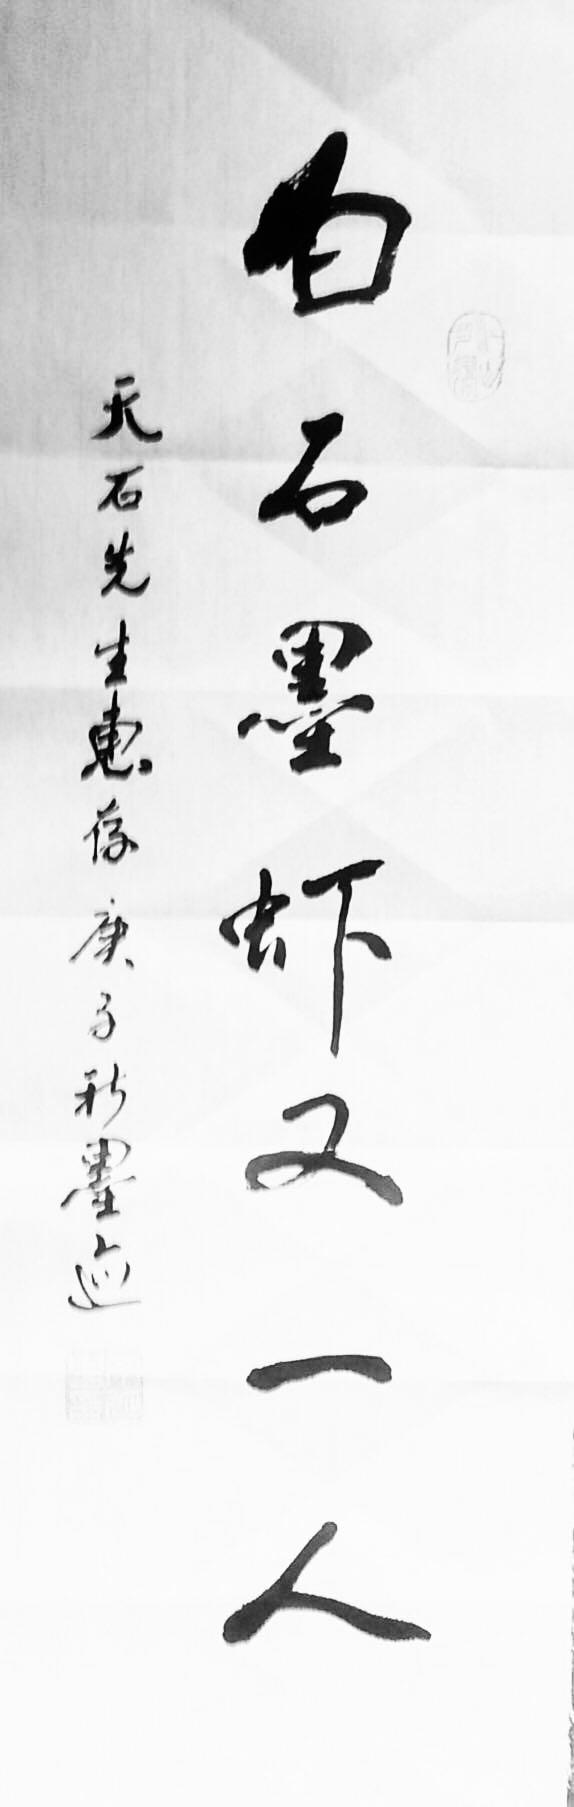 白石墨虾又一人
天石先生惠存庚子秋墨迹